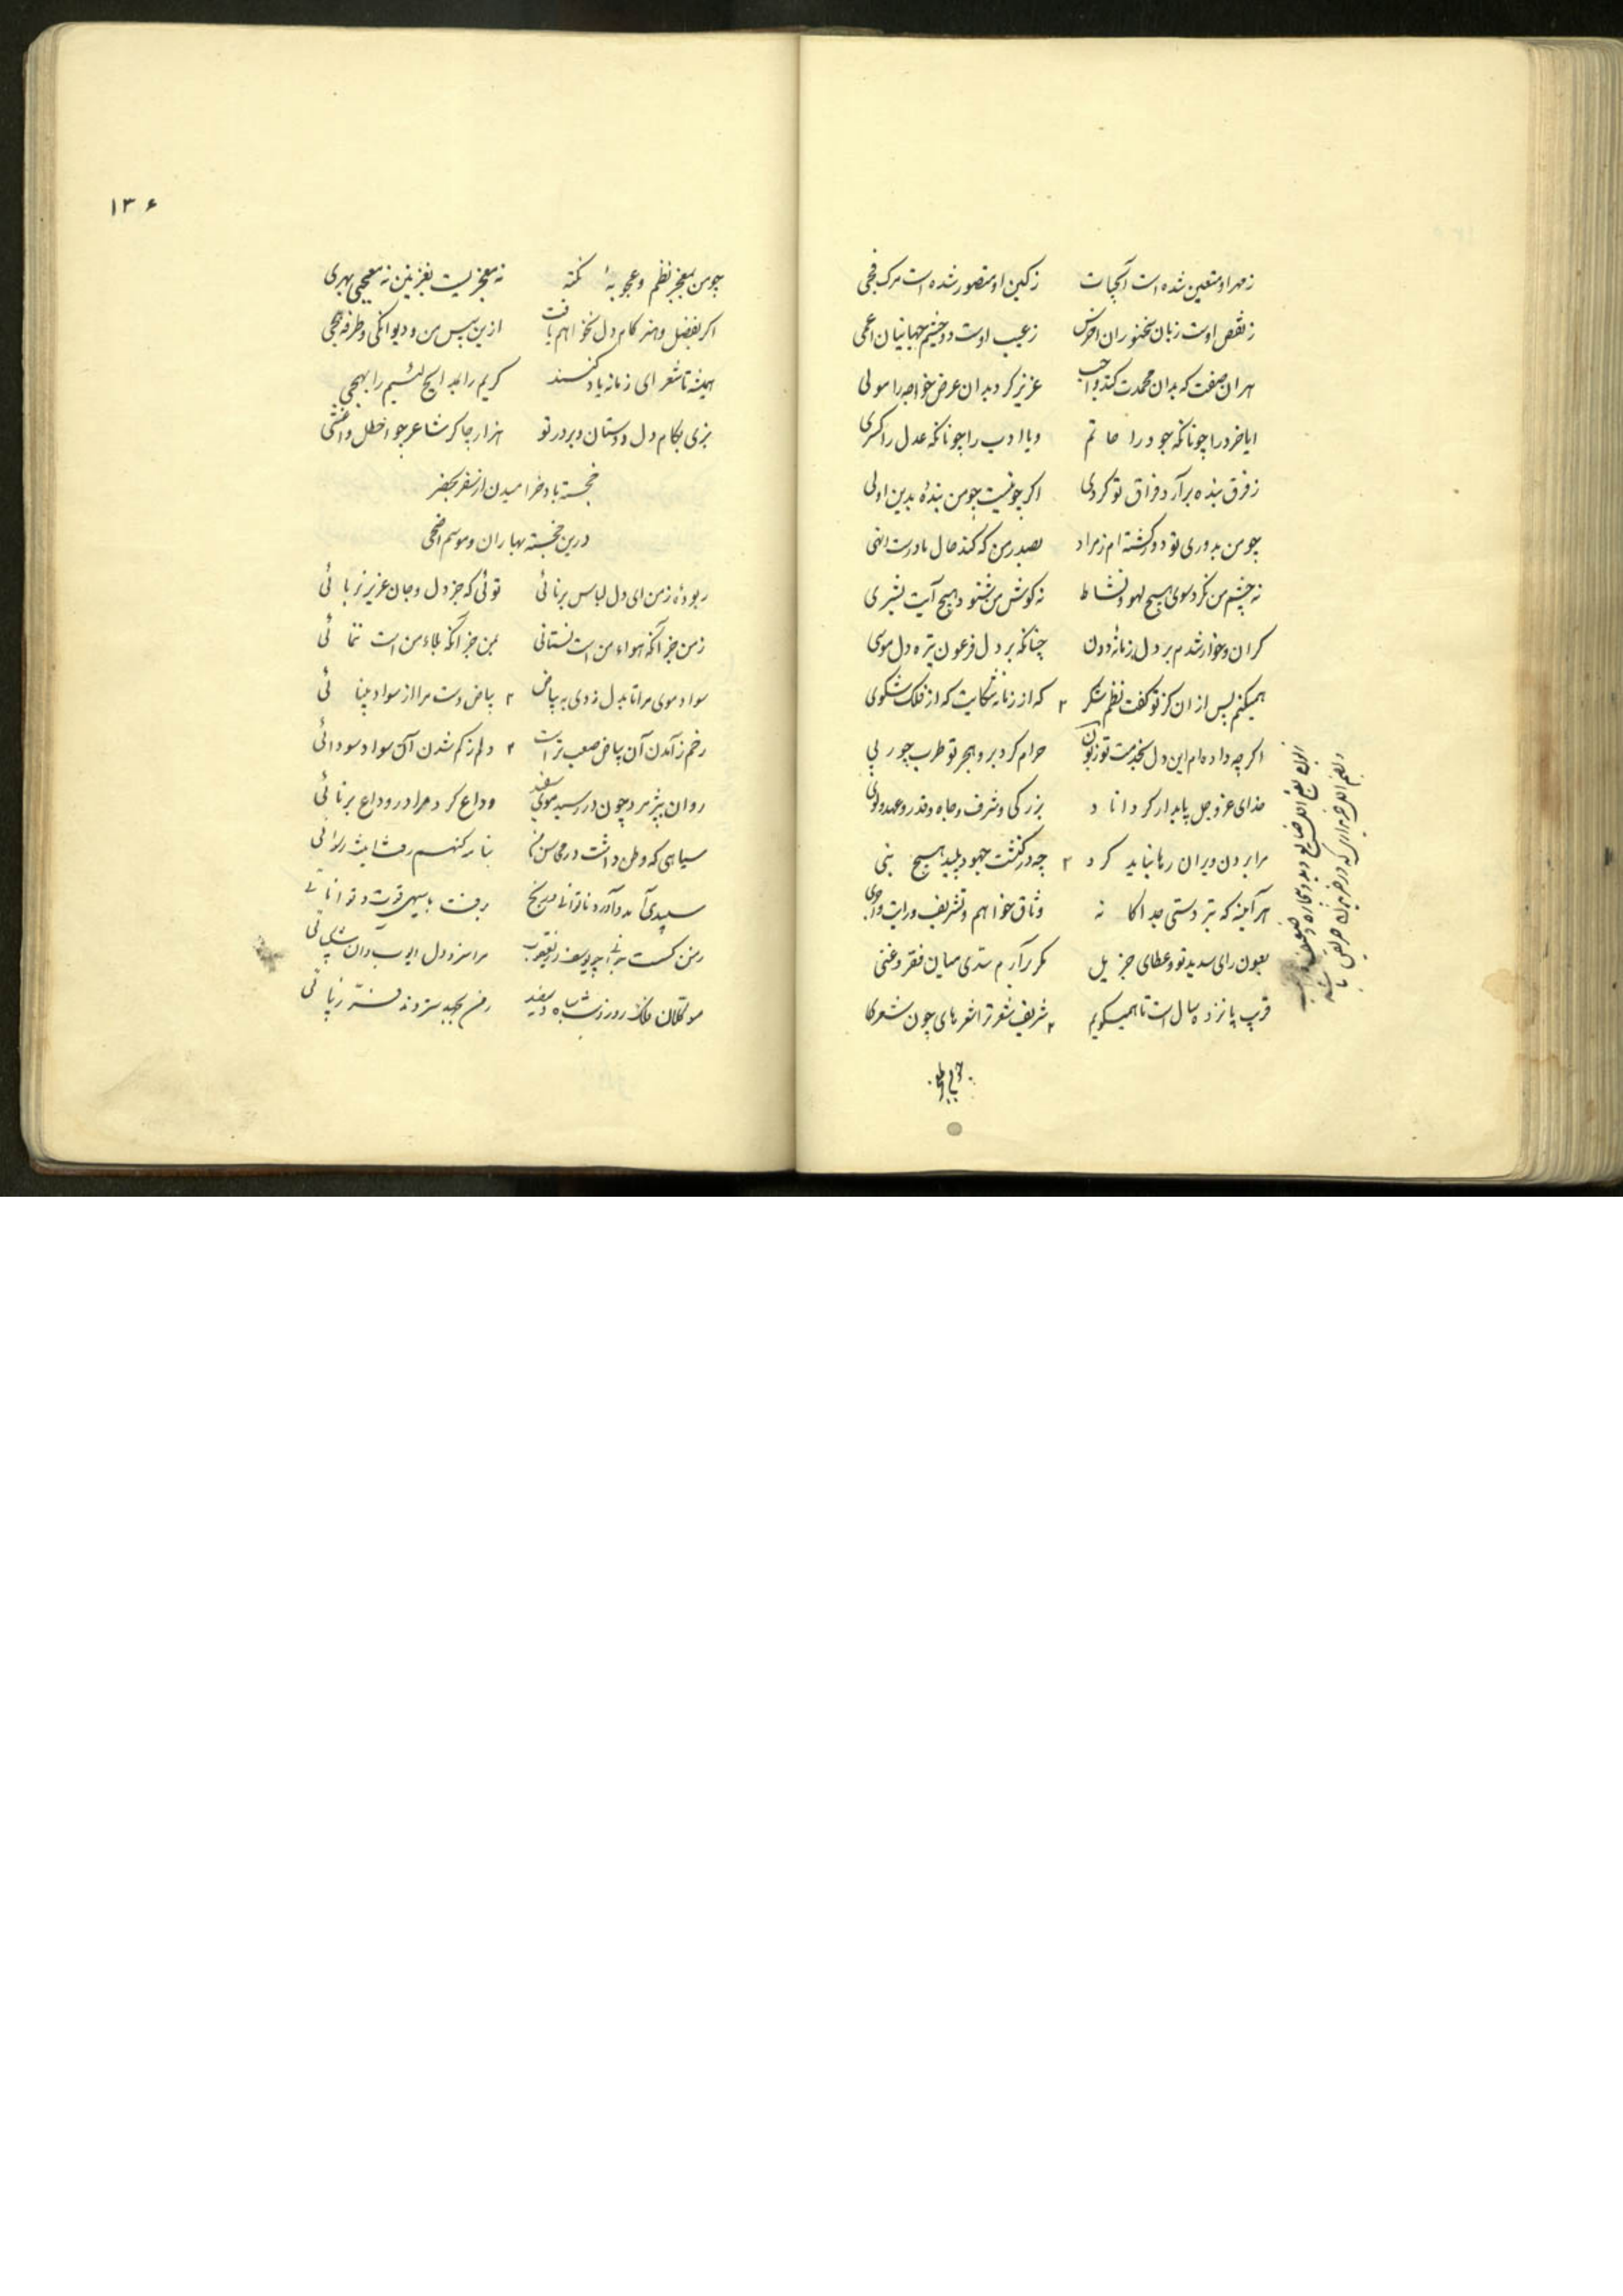 زمهر او متعین شده است آبحیات زکین او متصور شده است مرک فجی
زنقص اوست زبان سخنوران اخرس زعیب اوست دو چشم جهانیان اعمی
هران صفت که بدان محمدت کند واجب عزیز کرد بدان عرض خواجه را مولی
ایا خرد را چونانکه جود را حاتم ویا ادب را چونانکه عدل را کسری
زفرق بنده برآرد فراق تو کردی اکر چو نیست چو من بندهٔ بدین اولی
چو من بدوری تو دور کشته ام زمراد بصدر من که کند حال نادرست انهی
نه چشم من نکرد سوی هیچ لهو و نشاط نه کوش من شنود هیچ آیت بشری
کران و خوار شدم بر دل زمانهٔ دون چنانکه بر دل فرعون تیره دل موسی
همیکنم پس ازان کز تو کفت نظم شکر که از زمانه شکایت که از فلک شکوی
اکرچه داده ام این دل بخدمت تو زبون حرام کرد برو هجر تو طرب چو ربی
خدای عز و جل پایدار کرداناد بزرکی و شرف و جاه و قدر و عهد ولوی
مرا بردن ویران رها نباید کرد چه در کنشت جهود پلید هیچ بنی
هر آینه که بتر دستی جداکانه وثاق خواهم و تشریف وراتب واجری
بعون رای سدید تو و عطای جزیل مکر برآرم سدی میان فقر و غنی
قرب پانزده سال است تا همیکویم شریف شعر تر اشعرهای چون شعری
۱۳۶
چو من بمعجز نظم و عجوبهٔ نکته نه معجزیست بغزنین نه معجبی بهری
اکر بفضل و هنر کام دل نخواهم یافت ازین سپس من و دیوانکی و طرفه هجی
همیشه تا شعرای زمانه یاد کنند کریم را بمدایح لئیم را بهجی
بزی بکام دل دوستان و بر در تو هزار چاکر شاعر چو اخطل و اعشی
خجسته باد خرامیدن از سفر بحضر
درین خجسته بهاران و موسم اضحی
ربودهٔ زمن ای دل لباس برنائی توئی که جز دل و جان عزیز نربائی
زمن جز آنکه هواء من است نستانی بمن جز آنکه بلاء من است ننمائی
سواد موی مرا تا بدل زدی به بیاض بیاض دست مرا از سواد بینائی
رخم ز آمدن آن بیاض صعب تر است دلم ز کم شدن آن سواد سودائی
روان بپژمرد چون در رسید موی سفید وداع کرد مرا در وداع برنائی
سیاهی که وطن داشت در محاسن من
سپیدی آمد و آورد ناتوانی و رنج برفت با سپهی قوت و توانائی